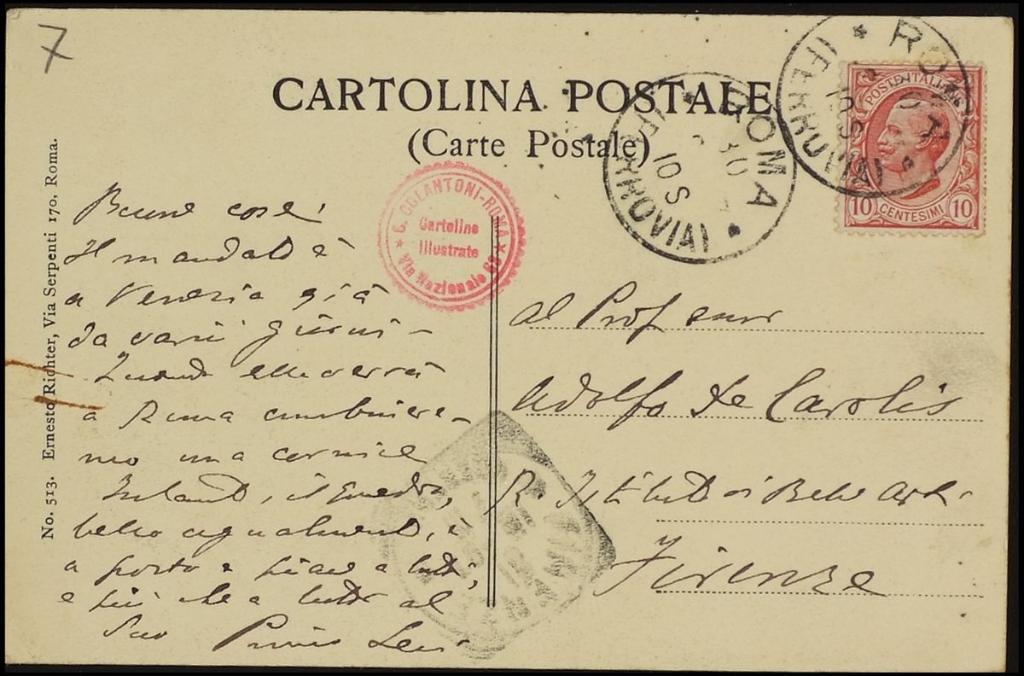 7
CARTOLINA POSTALE
(Carte Postale)
ROMA
(FERROVIA)
10 S
ROMA
(FERROVIA)
10 S
POSTE ITALIANE
10 CENTESIMI 10
G. COLANTONI-ROMA
Cartoline
Illustrate
Via Nazionale
No. 513. Ernesto Richter, Via Serpenti 170. Roma.
Buone cose!
Il mandato è
a Venezia già
da varii giorni –
Quando ella verrà
a Roma combinere-
mo una cornice
Intanto, il quadro,
bello ugualmente, è
a posto e piace a tutti,
e più che a tutti al
Suo Primo Levi
Al Professor
Adolfo De Carolis
R. Istituto di Belle Arti
Firenze